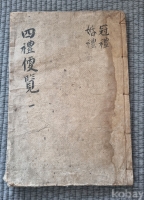 冠禮
婚禮
四禮便覽 一
kobay